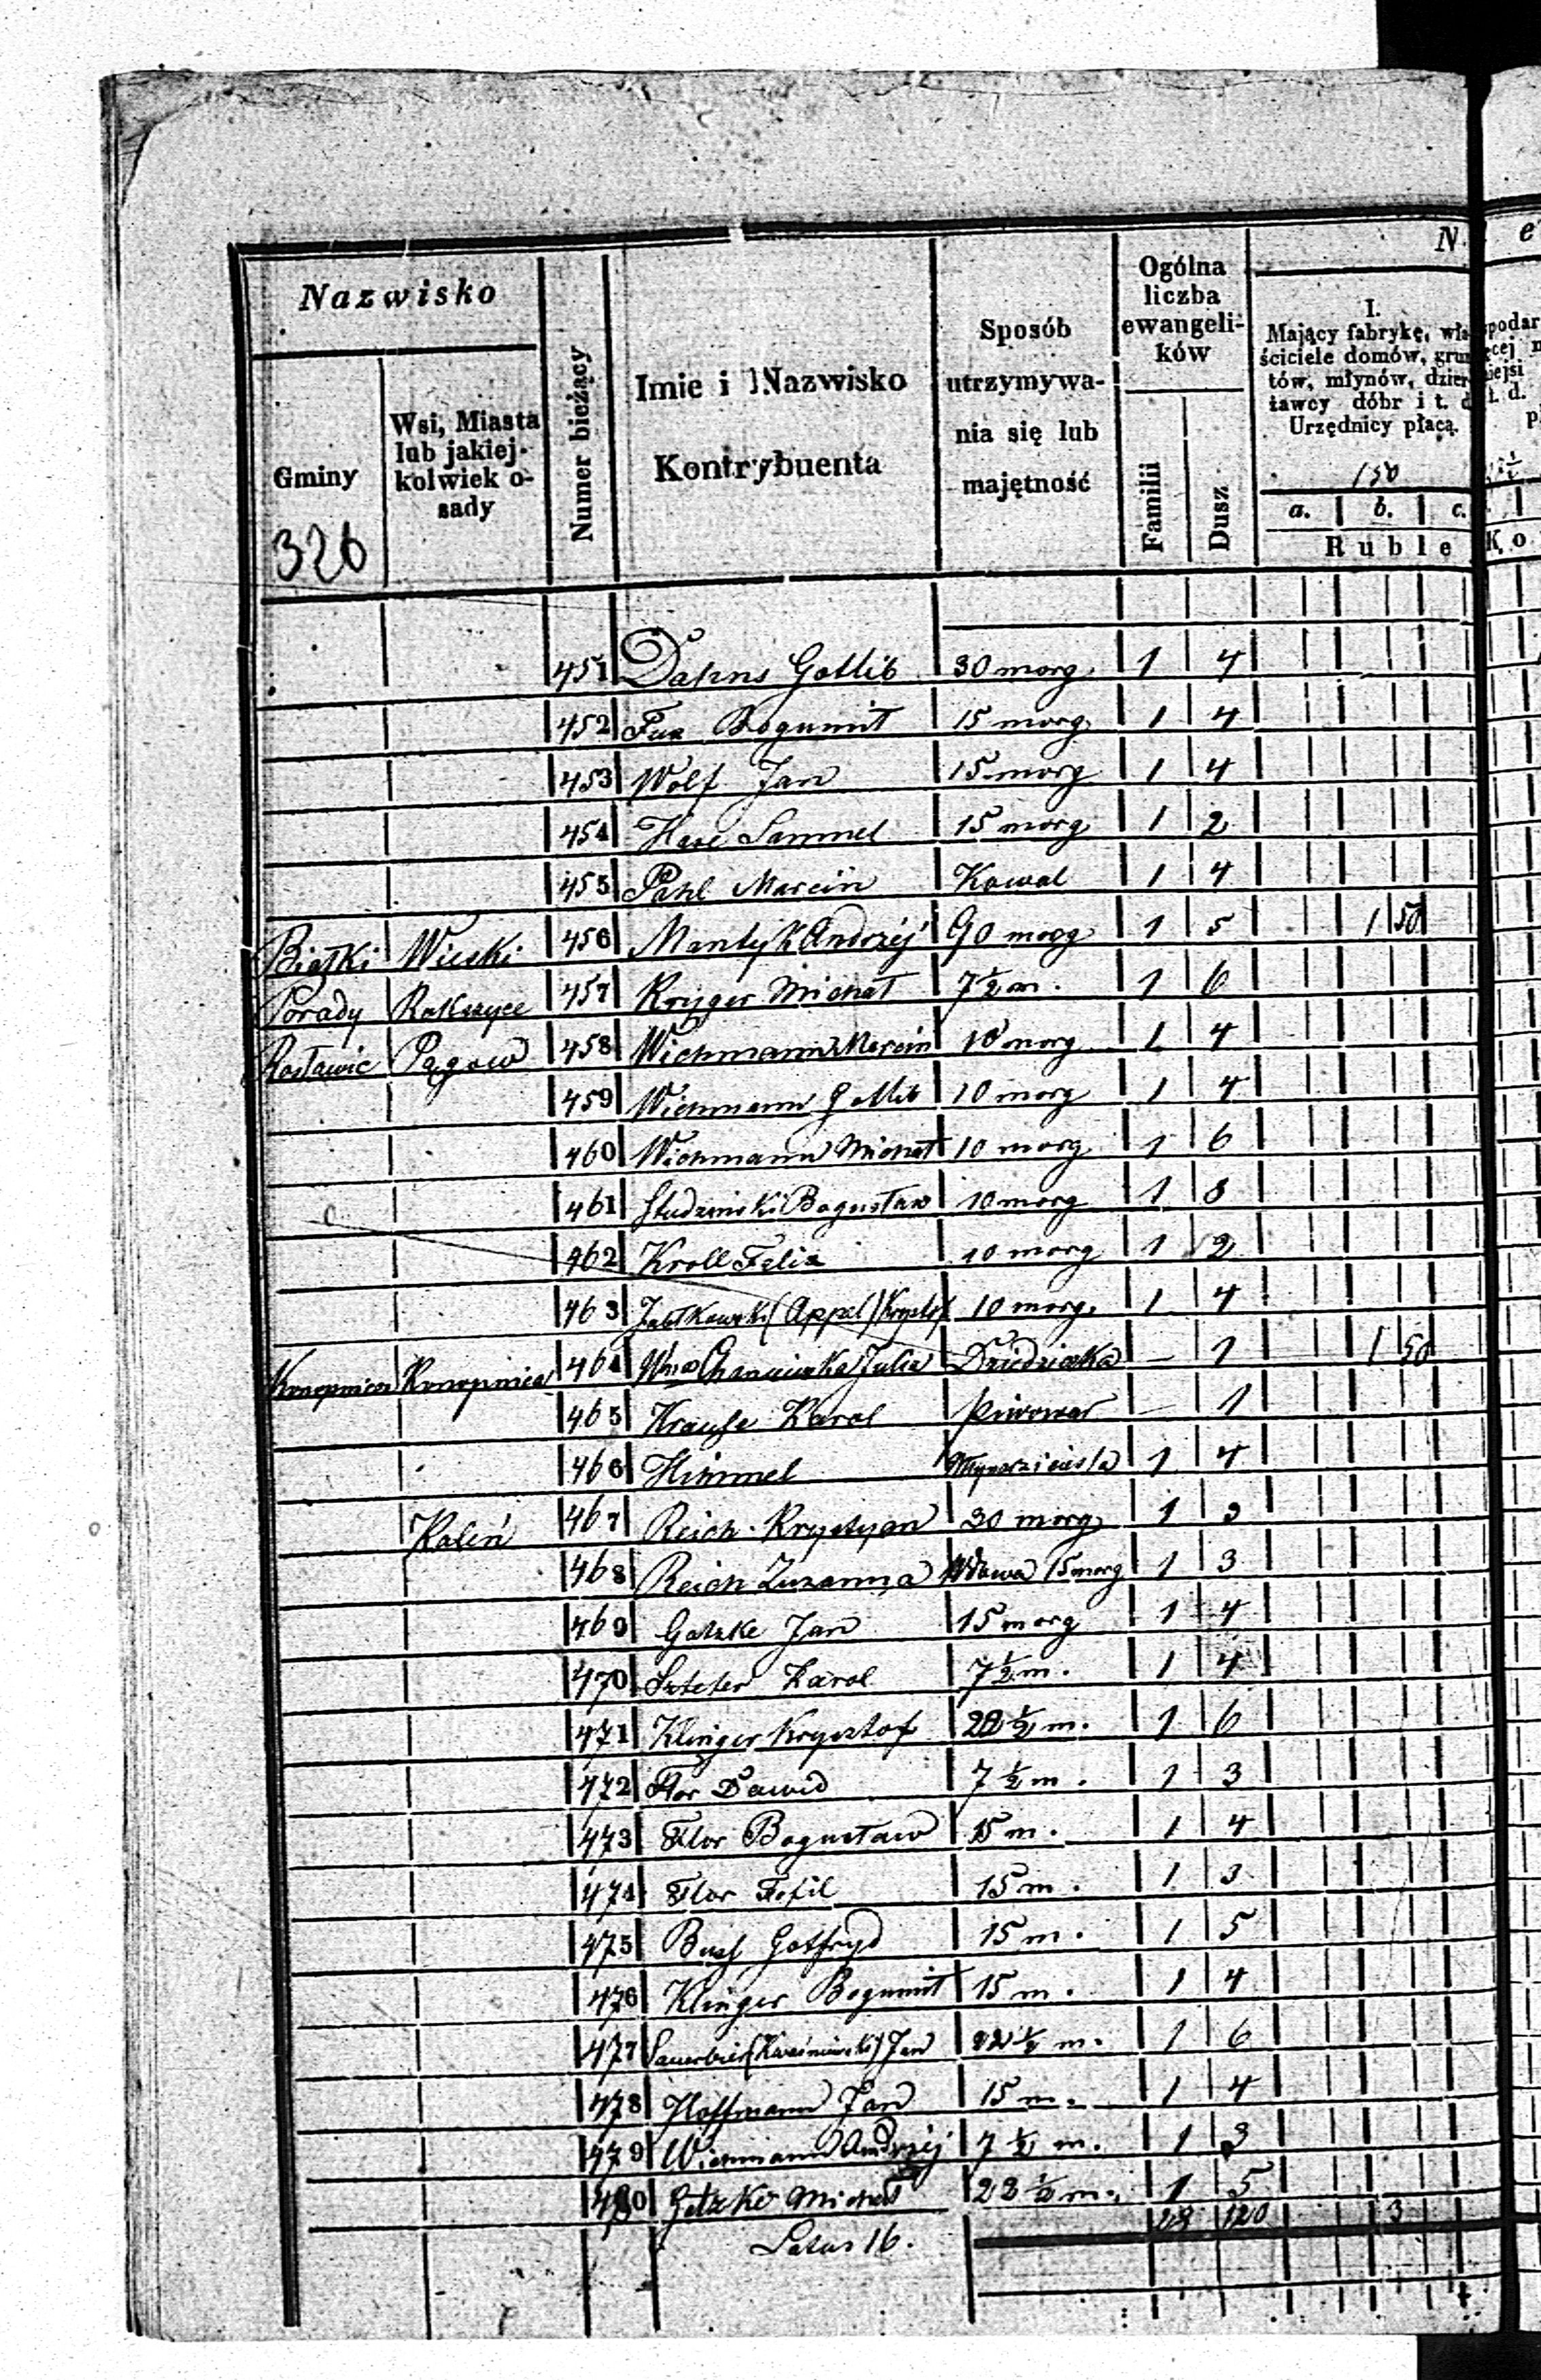 N e
Nazwisko
Gminy
326
Wsi, Miasta lub jakiej- kolwiek o- sady
Numer bieżący
Imie i Nazwisko
Kontrybuenta
Sposób
utrzymywa-
nia się lub
majętność
Ogólna
liczba
ewangeli-
ków
Familii
Dusz
I.
Mający fabrykę, wła-
ściciele domów, grun
tów, młynów, dzier
żawcy dóbr i t. d
Urzędnicy płacą.
150
a. b. c.
Ruble Ko
451 Dahns Gotlib 30 morg 1 4
452 Fux Bogumił 15 morg 1 4
453 Wolf Jan 15 morg 1 4
454 Hase Samuel 15 morg 1 2
455 Pahl Marcin Kowal 1 4
Białki Wieski 456 Mantyk Andrzéj 90 morg 1 5 1 50
Porady Rokszyce 457 Kryger Michał 7½ m. 1 6
Rosławic Pągow 458 Wichmann Marcin 10 morg 1 4
459 Wichmann Gotlib 10 morg 1 4
460 Wichmann Michał 10 morg 1 6
461 Studzinski Bogusław 10 morg 1 8
462 Kroll Felix 10 morg 1 2
463 Jabłkowski (Appel) Krysztof 10 morg. 1 4
Konopnica Konopnica 464 Wna Julia Dziedziczka — 1 1 50
465 Krause Karol piwowar — 1
466 Himmel 1 4
Kaleń 467 Reich Krystyan 30 morg 1 3
468 Reich Zuzanna Wdowa 15 morg 1 3
469 Gatzke Jan 15 morg 1 4
470 Szteter Karol 7½ m. 1 4
471 Klinger Krysztof 22½ m. 1 6
472 Flor Dawid 7½ m. 1 3
473 Flor Bogusław 15 m. 1 4
474 Flor Fefil 15 m. 1 3
475 Busz Gotfryd 15 m. 1 5
476 Klinger Bogumił 15 m. 1 4
477 Sauerbier (Kwaśniewski) Jan 22½ m. 1 6
478 Hoffmann Jan 15 m. 1 4
479 Wichmann Andrzéj 7½ m. 1 3
480 Getzke Michał 22½ m. 1 5
Latus 16. 28 120 3